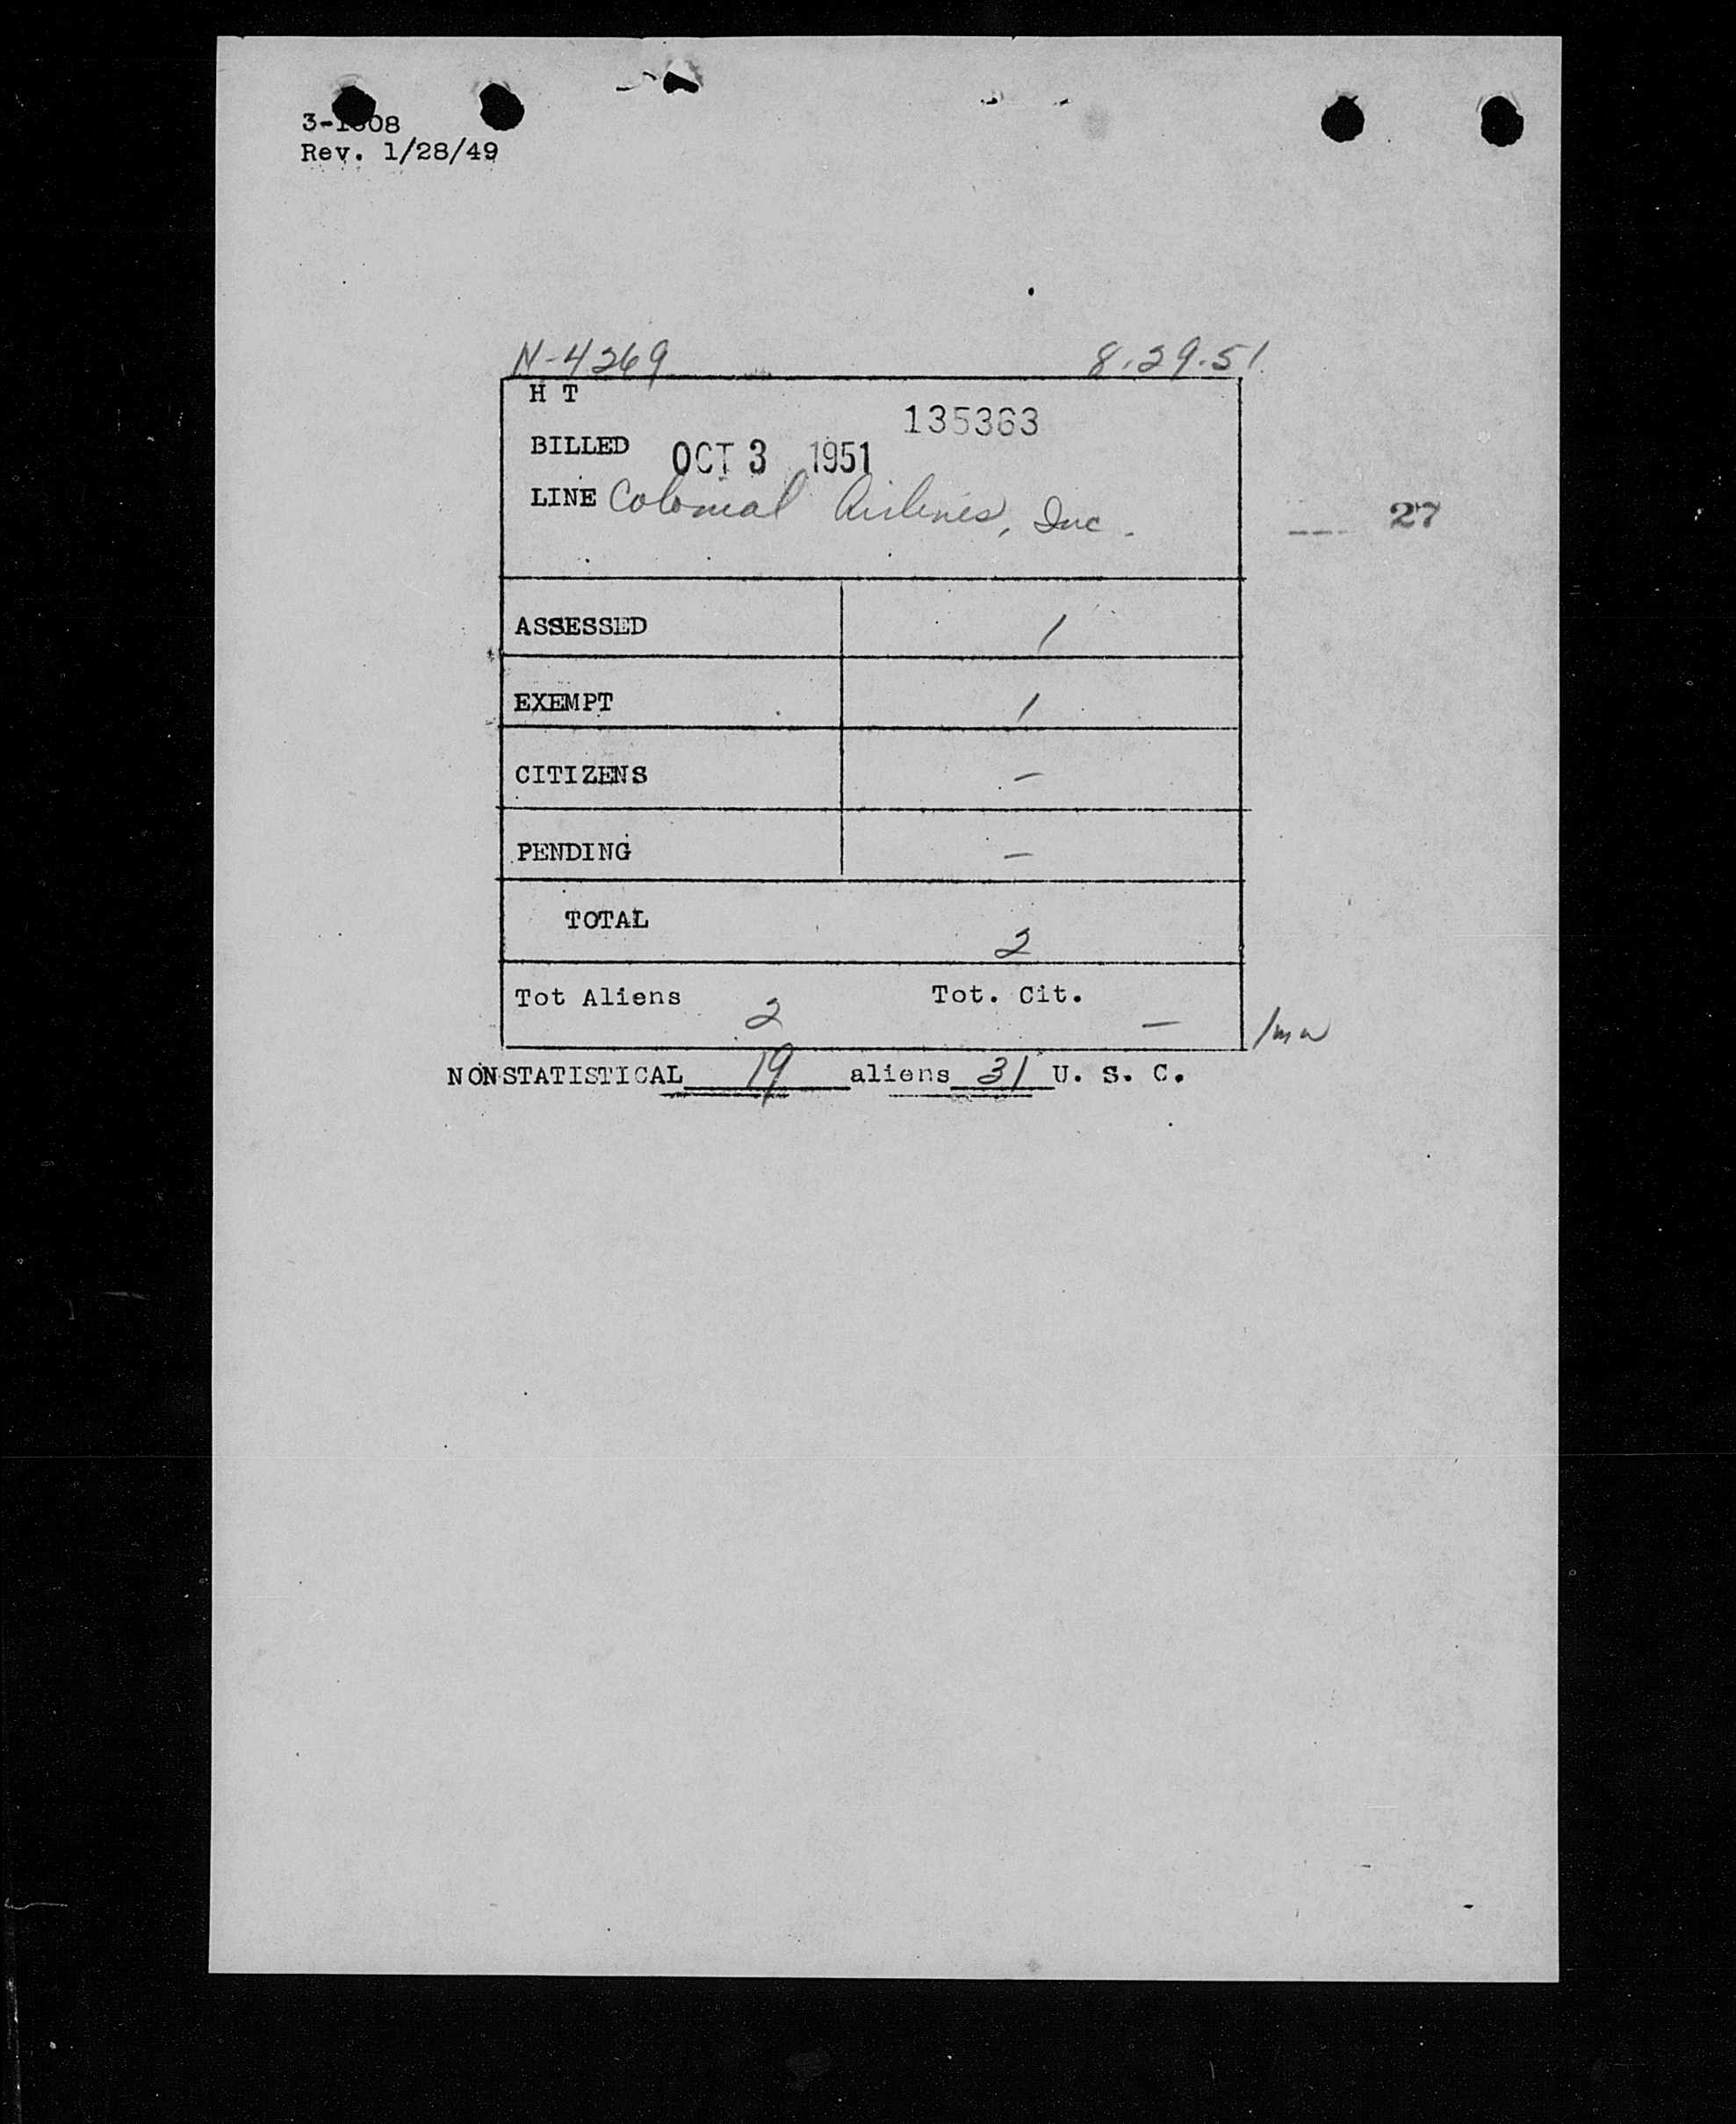 Rev. 1/28/49
N-4269 8.29.51
H T
135363
BILLED OCT 3 1951
LINE Colonial Airlines, Inc.
27
ASSESSED 1
EXEMPT 1
CITIZENS –
PENDING –
TOTAL 2
Tot Aliens 2 Tot. Cit. –
NONSTATISTICAL 19 aliens 31 U. S. C.